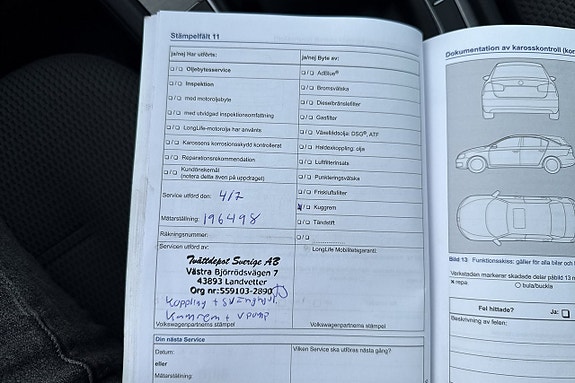 Stämpelfält 11
ja/nej Har utförts:
Oljebytesservice
Inspektion
med motoroljebyte
med utvidgad inspektionsomfattning
LongLife-motorolja har använts
Karossens korrosionsskydd kontrollerat
Reparationsrekommendation
Kundönskemål
(notera detta även på uppdraget)
Service utförd den: 4/7
Mätarställning: 196498
Räkningsnummer:
Servicen utförd av:
Tvättdepot Sverige AB
Västra Björrödsvägen 7
43893 Landvetter
Org nr:559103-2890
Koppling + svänghjul
Kamrem + V pump
Volkswagenpartnerns stämpel
ja/nej Byte av:
AdBlue®
Bromsvätska
Dieselbränslefilter
Gasfilter
Växellådsolja: DSG®, ATF
Haldexkoppling: olja
Luftfilterinsats
Punkteringsvätska
Friskluftsfilter
Kuggrem
Tändstift
LongLife Mobilitetsgaranti:
Volkswagenpartnerns stämpel
Din nästa Service
Datum:
eller
Mätarställning:
Vilken Service ska utföras nästa gång?
Dokumentation av karosskontroll (kor
Bild 13 Funktionsskiss: gäller för alla bilar och
Verkstaden markerar skadade delar på bild 13 m
x repa
o bula/buckla
Fel hittade?
Ja:
Beskrivning av felen: